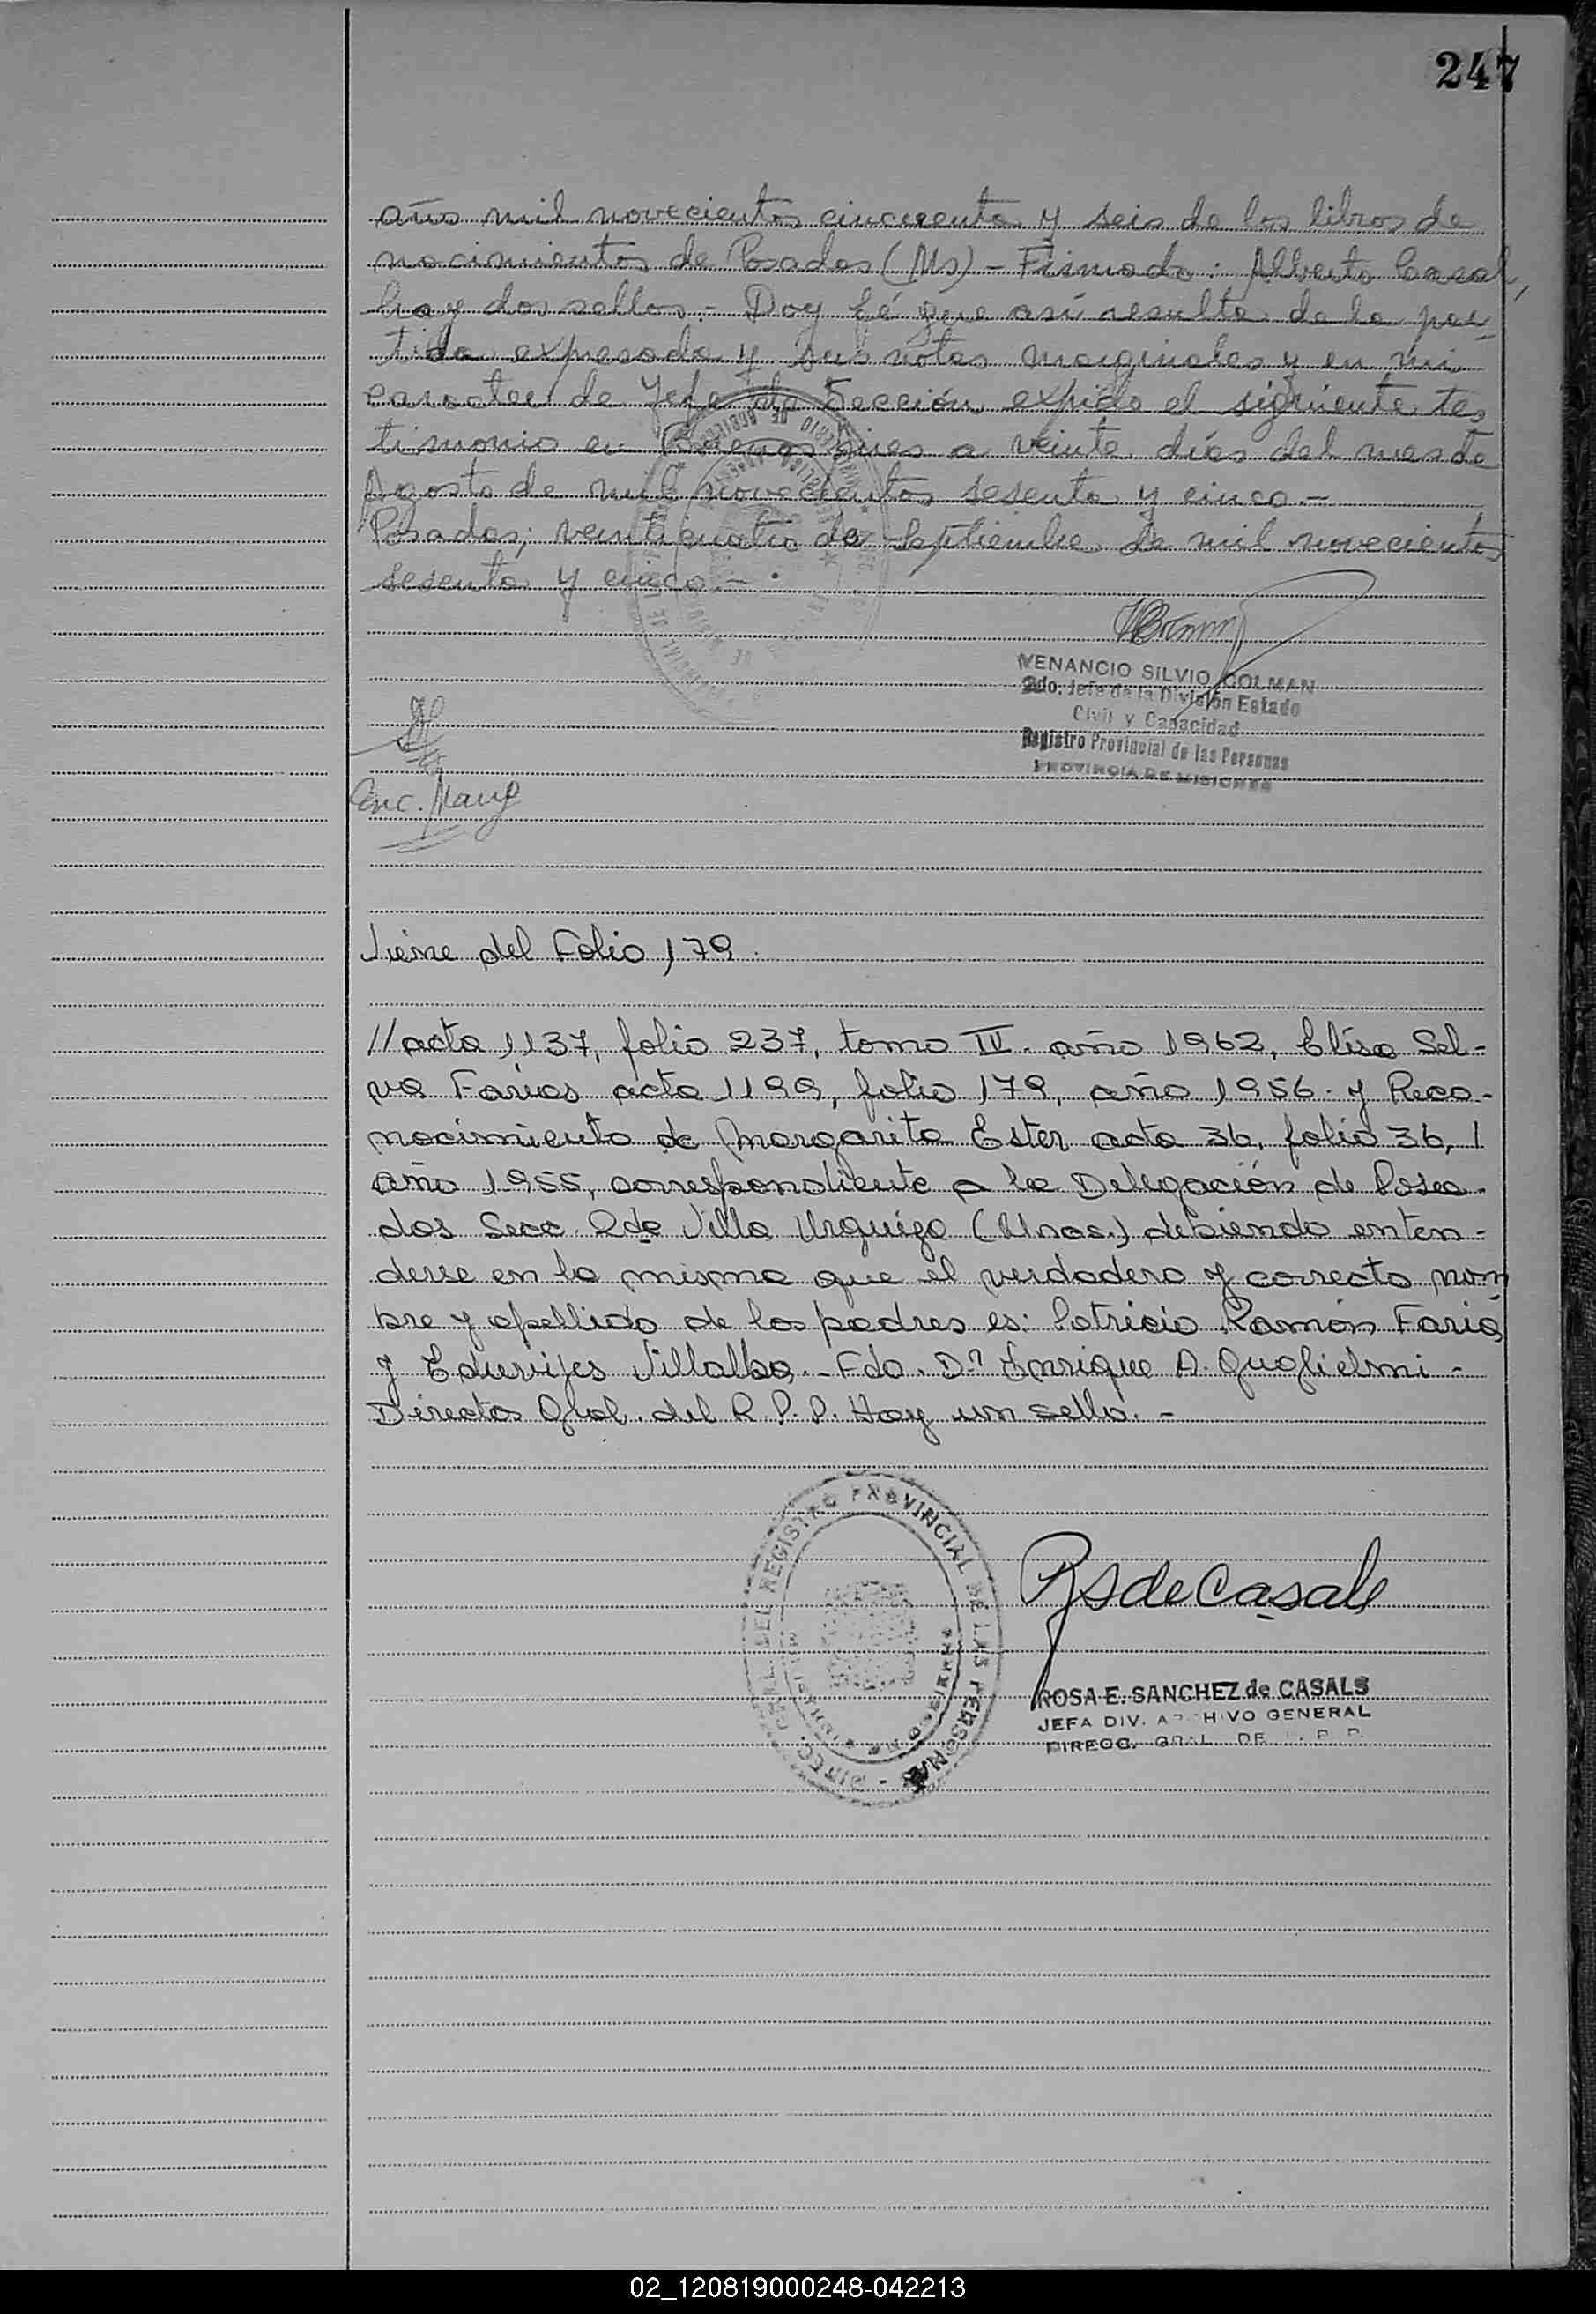 247
años mil novecientos cincuenta y seis de los libros de
nacimientos de Posadas (Ms) - Firmado: Alberto Casal,
hay dos sellos.- Doy fé que así resulta de la par-
tida expresada y sus notas marginales y en mi
caracter de Jefe de Sección expido el siguiente tes
timonio en Buenos Aires a veinte días del mes de
Agosto de mil novecientos sesenta y cinco.-
Posadas, veinticuatro de Septiembre de mil novecientos
sesenta y cinco.-
VENANCIO SILVIO COLMAN
2do. Jefe de la División Estado
Civil y Capacidad
Registro Provincial de las Personas
PROVINCIA DE MISIONES
Enc.
Viene del Folio 179.
// acta 1137, folio 237, tomo III. año 1962, Elisa Sel-
va Farias acta 1199, folio 179, año 1956. y Reco-
nocimiento de Margarita Ester acta 36, folio 36, /
año 1955, correspondiente a la Delegación de Posa-
das Secc. 2da Villa Urquiza (Mnes.) debiendo enten-
derse en la misma que el verdadero y correcto nom
bre y apellido de los padres es: Patricio Ramón Faria
y Eduvijes Villalba.- Fdo. Dn Enrique A. Guglielmi -
Director Gral. del R.P.P. Hay un sello.-
DIREC. GRAL. DEL REGISTRO PROVINCIAL DE LAS PERSONAS
RS de Casals
ROSA E. SANCHEZ de CASALS
JEFA DIV. ARCHIVO GENERAL
DIRECC. GRAL. DE R. P. P.
02_120819000248-042213